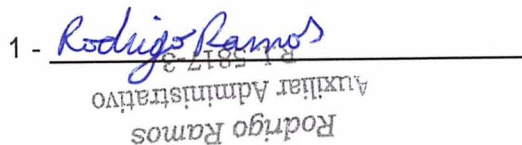 1 - Rodrigo Ramos
Rodrigo Ramos
Auxiliar Administrativo
5817-3